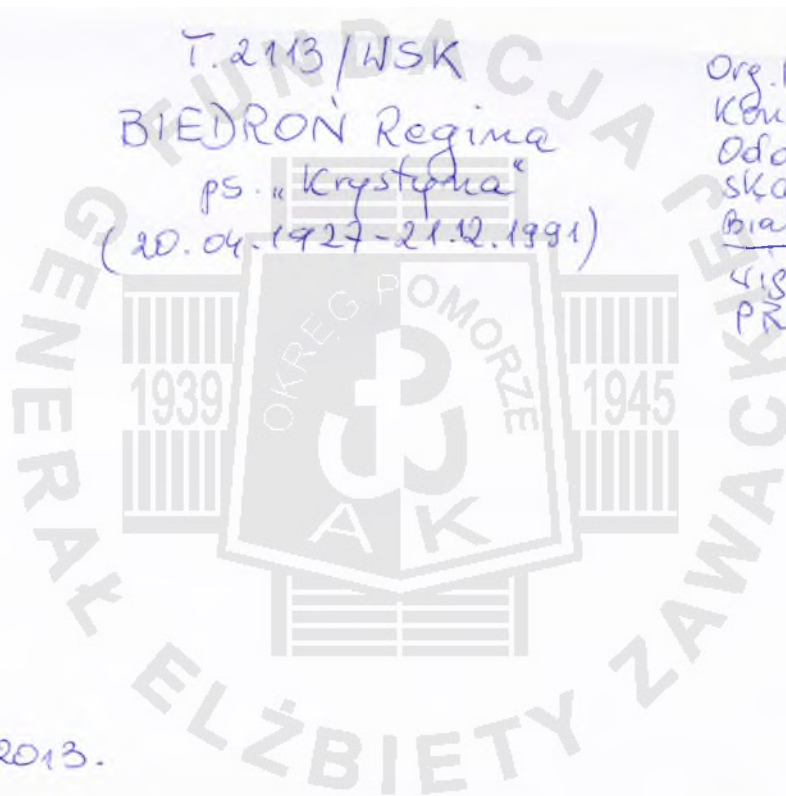 T.2113/WSK
BIEDROŃ Regina
ps. „Krystyna"
(20.04.1927-21.12.1991)
Org.
2013.
FUNDACJA GENERAŁ ELŻBIETY ZAWACKIEJ
OKRĘG POMORZE
1939
1945
AK